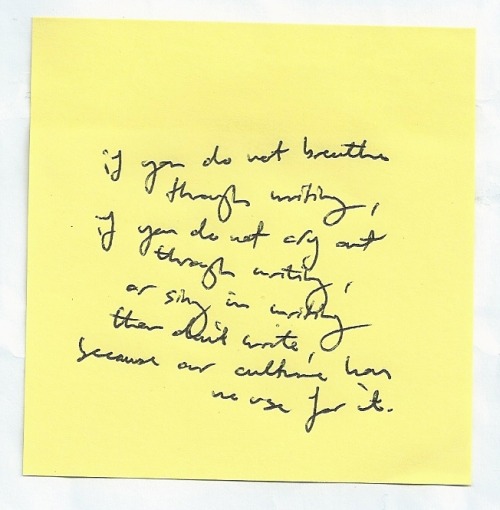 if you do not breathe
through writing,
if you do not cry out
through writing,
or sing in writing
then don't write,
because our culture has
no use for it.